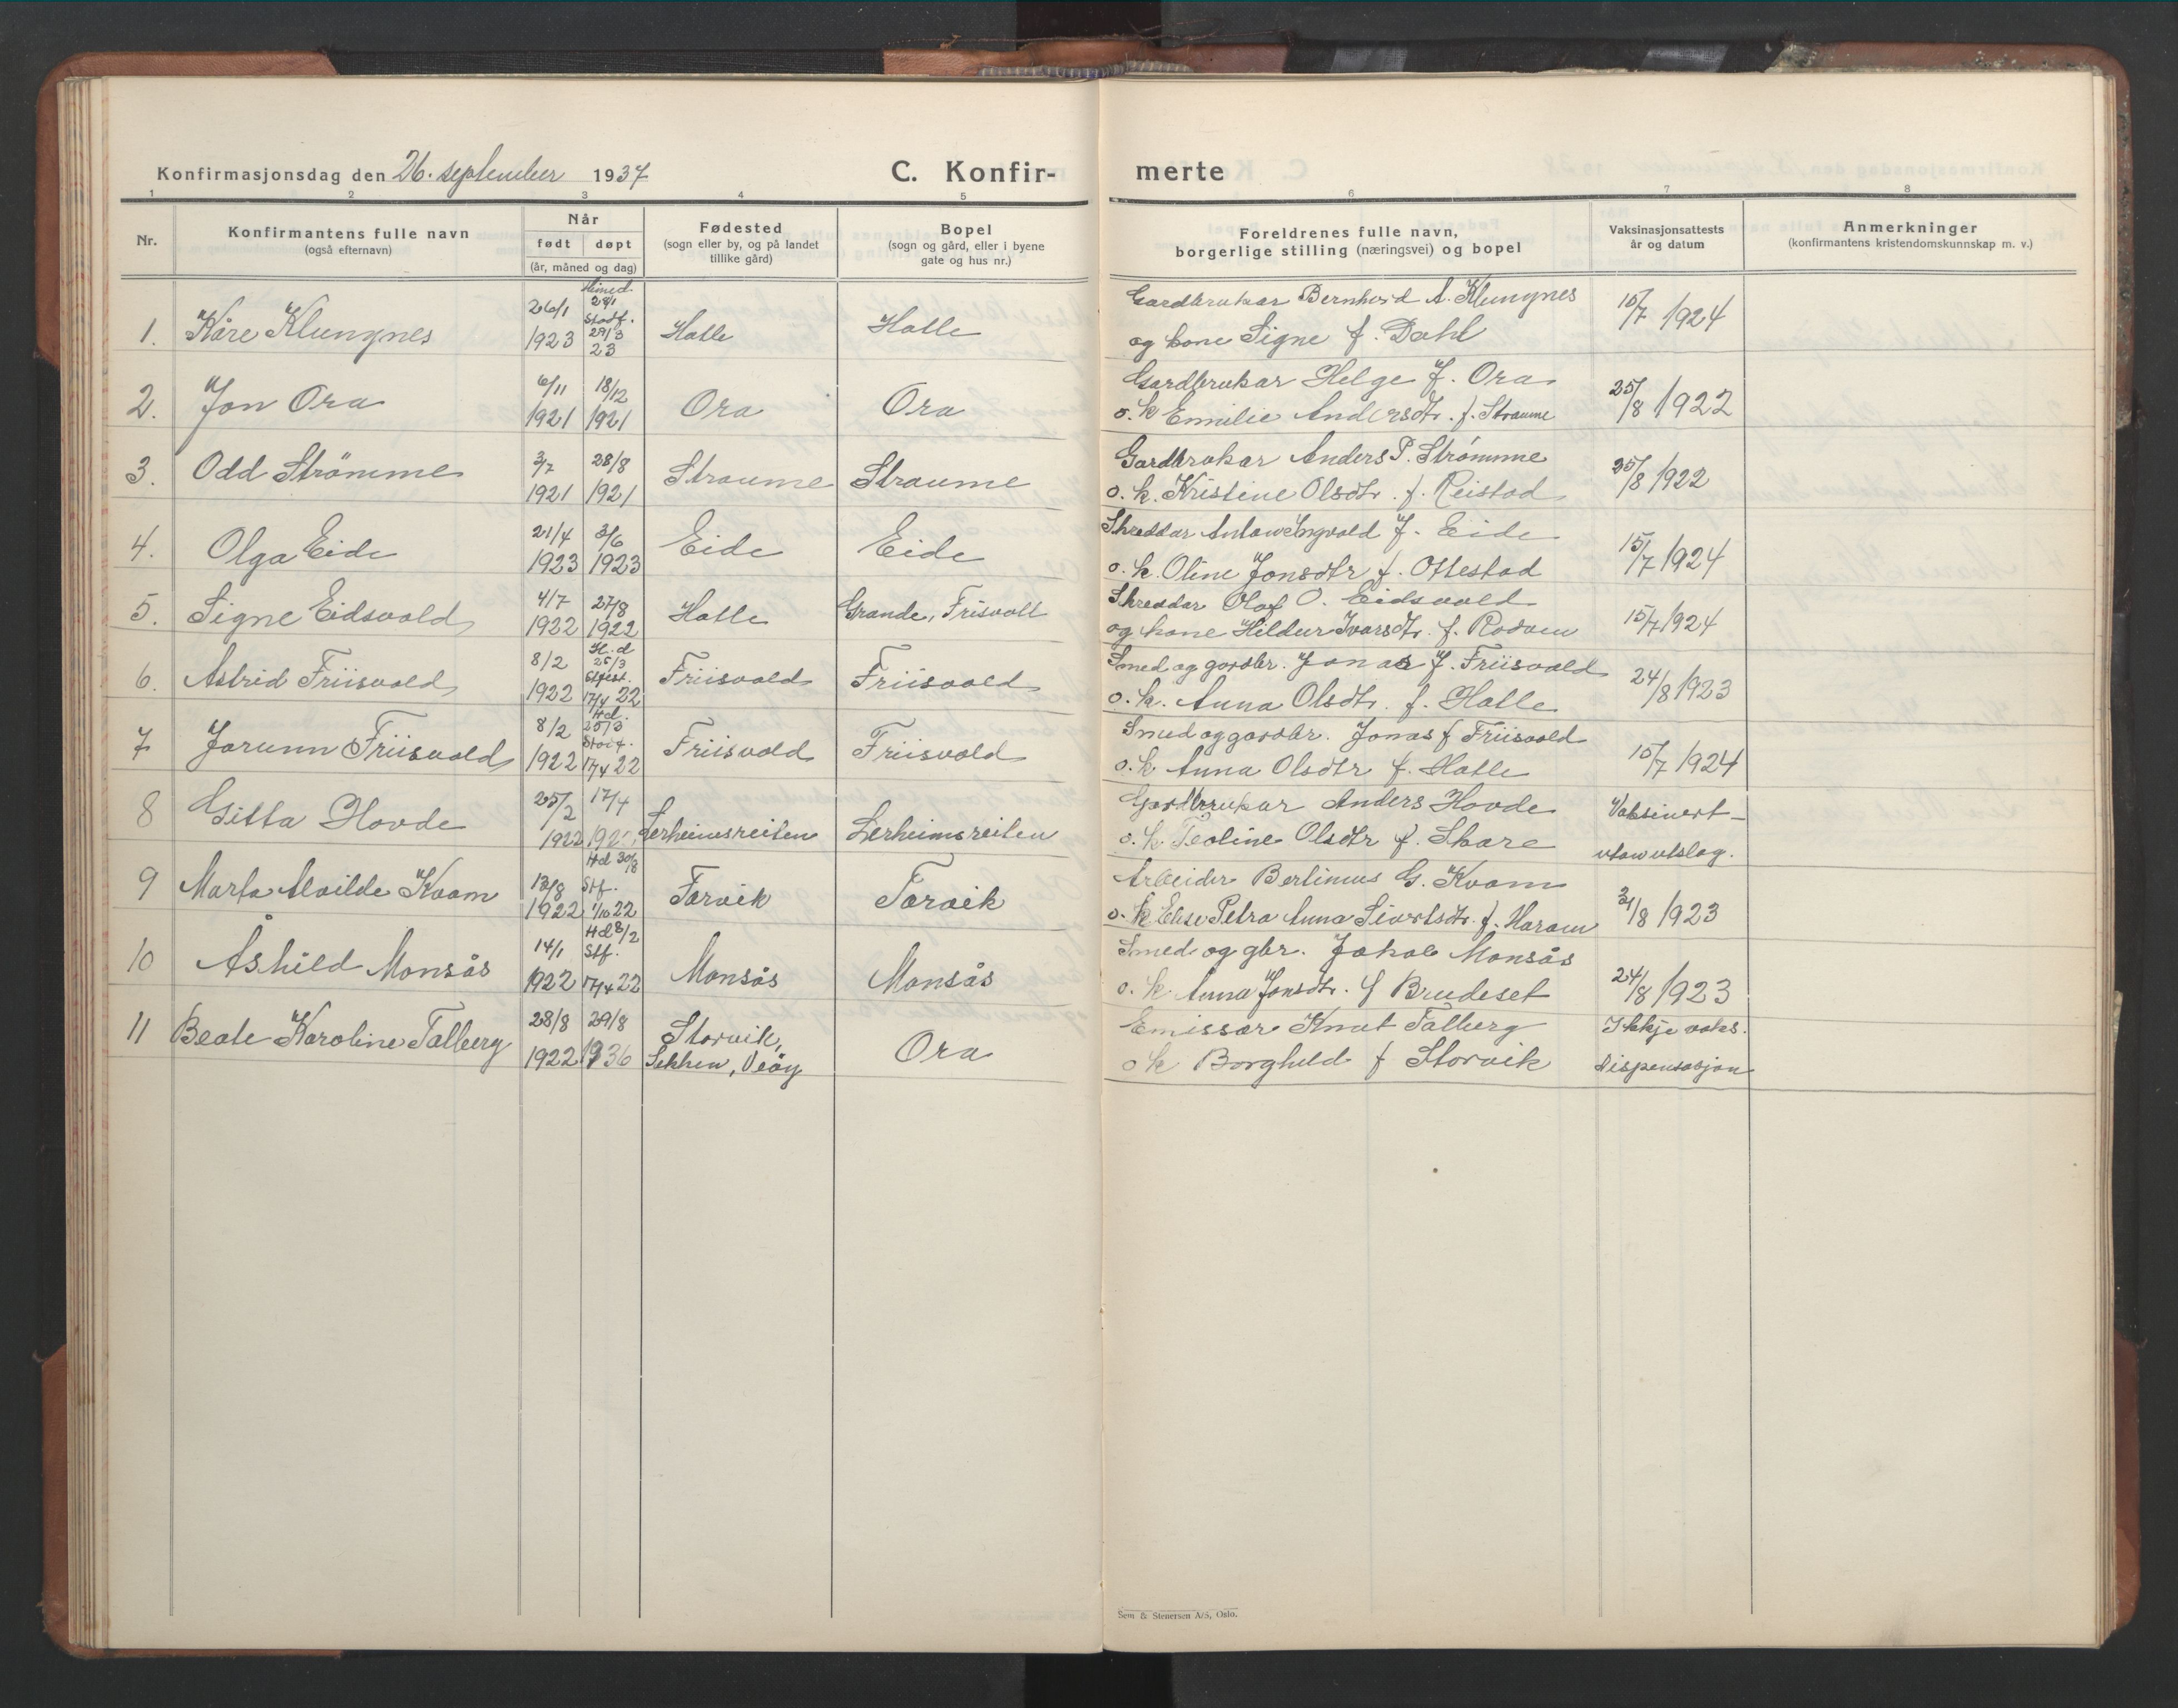 Konfirmasjonsdag den 26. september 1937
C. Konfir-
merte
1 2 3 4 5 6 7 8
Nr.
Konfirmantens fulle navn
(også efternavn)
Når
født døpt
(år, måned og dag)
Fødested
(sogn eller by, og på landet
tillike gård)
Bopel
(sogn og gård, eller i byene
gate og hus nr.)
Foreldrenes fulle navn,
borgerlige stilling (næringsvei) og bopel
Vaksinasjonsattests
år og datum
Anmerkninger
(konfirmantens kristendomskunnskap m. v.)
1. Kåre Klungnes 26/1 1923 Hatle Hatle
Gardbrukar Bernhard A. Klungnes
og kone Signe f. Dahl
15/7 1924
2. Jon Ora 6/11 1921 18/12 1921 Ora Ora
Gardbrukar Helge J. Ora
o. k Emilie Andersdtr. f. Straume
25/8 1922
3. Odd Strömme 3/7 1921 28/8 1921 Straume Straume
Gardbrukar Anders P. Strömme
o. k. Kristine Olsdtr. f. Reistad
25/8 1922
4. Olga Eide 21/4 1923 3/6 1923 Eide Eide
Skreddar Anton Ingvald J. Eide
o. k. Oline Jonsdtr f. Ottestad
15/7 1924
5. Signe Eidsvold 4/7 1922 27/8 1922 Hatle Grande, Frisvoll
Skreddar Olaf O. Eidsvold
og kone Hildur Ivarsdtr. f. Rødven
15/7 1924
6. Astrid Friisvold 8/2 1922 H. d 25/3 Stfest. 17/4 22 Friisvold Friisvold
Smed og gardbr. Jonas J. Friisvold
o. k. Anna Olsdtr. f. Hatle
24/8 1923
7 Jorunn Friisvold 8/2 1922 Hd. 25/3 17/4 22 Friisvold Friisvold
Smed og gardbr. Jonas J Friisvold
o. k Anna Olsdtr f. Hatle
15/7 1924
8 Gitta Hovde 25/2 1922 17/4 Lerheimsreiten Lerheimsreiten
Gardbrukar Anders Hovde
o. k. Teoline Olsdtr f. Skare
Vaksinert
utan utslag.
9 Marta Alvilde Kvam 13/8 1922 Hd 30/8 Stf. 1/10 22 Torvik Torvik
Arbeider Bertinius G. Kvam
o. k Elise Petra Anna Sivertsdtr. f. Haram
31/8 1923
10 Åshild Monsås 14/1 1922 Hd 8/2 Stf. 17/4 22 Monsås Monsås
Smed og gbr. Jakob Monsås
o. k. Anna Jonsdtr. f Brudeset
24/8 1923
11 Beate Karoline Talberg 28/8 1922 29/8 1936 Storvik,
Sekken, Veöy Ora
Emissær Knut Talberg
o k Borghild f Storvik
Ikkje vaks.
dispensasjon
Sem & Stenersen A/S, Oslo.